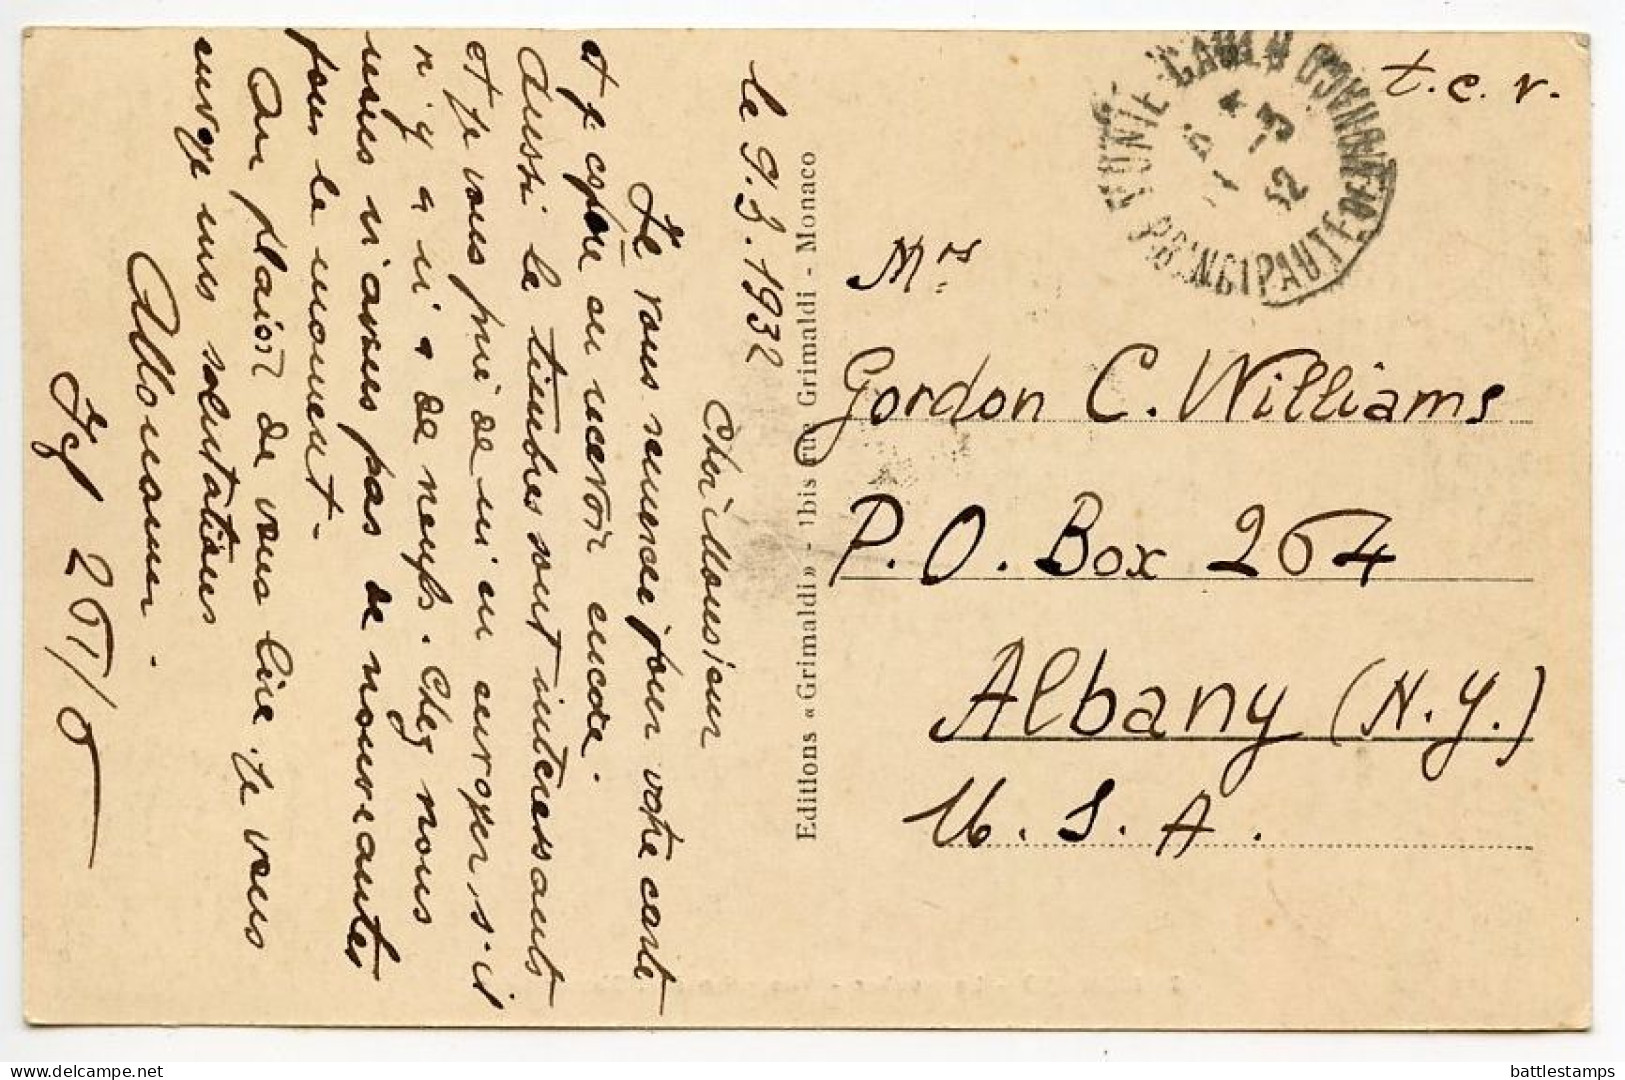 le 9.3.1932
Cher Monsieur
Je vous remercie pour votre carte
et j'espère en recevoir encore.
Aussi le timbres sont intéressants
et je vous prie de m'en envoyer s-il
n'y a de neufs. Chez nous
nous n'avons pas de nouveautes
pour le moment-
Au plaisir de vous lire je vous
envoye mes salutations
Jcf 265/8
Editions «Grimaldi» - 1bis rue Grimaldi - Monaco
t.c.v.
MONTE-CARLO
PRINCIPAUTE DE MONACO
-3
32
Mrs
Gordon C. Williams
P.O. Box 264
Albany (N.Y.)
U.S.A.
battlestamps